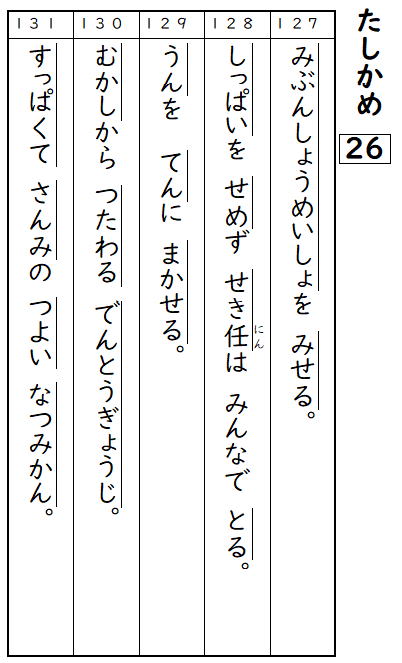 たしかめ
26
127
みぶんしょうめいしょを みせる。
128
しっぱいを せめず せき任は みんなで とる。
にん
129
うんを てんに まかせる。
130
むかしから つたわる でんとうぎょうじ。
131
すっぱくて さんみの つよい なつみかん。